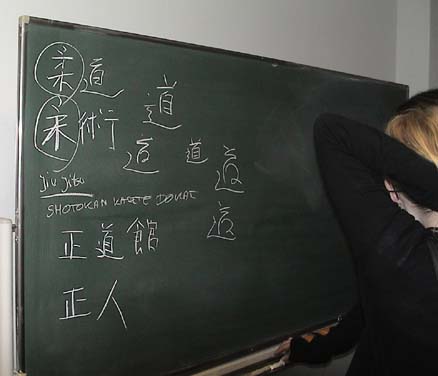 柔道 道
柔術
道 道 道
jiu jitsu
SHOTOKAN KARATE DOKAI
道
正道館
正人